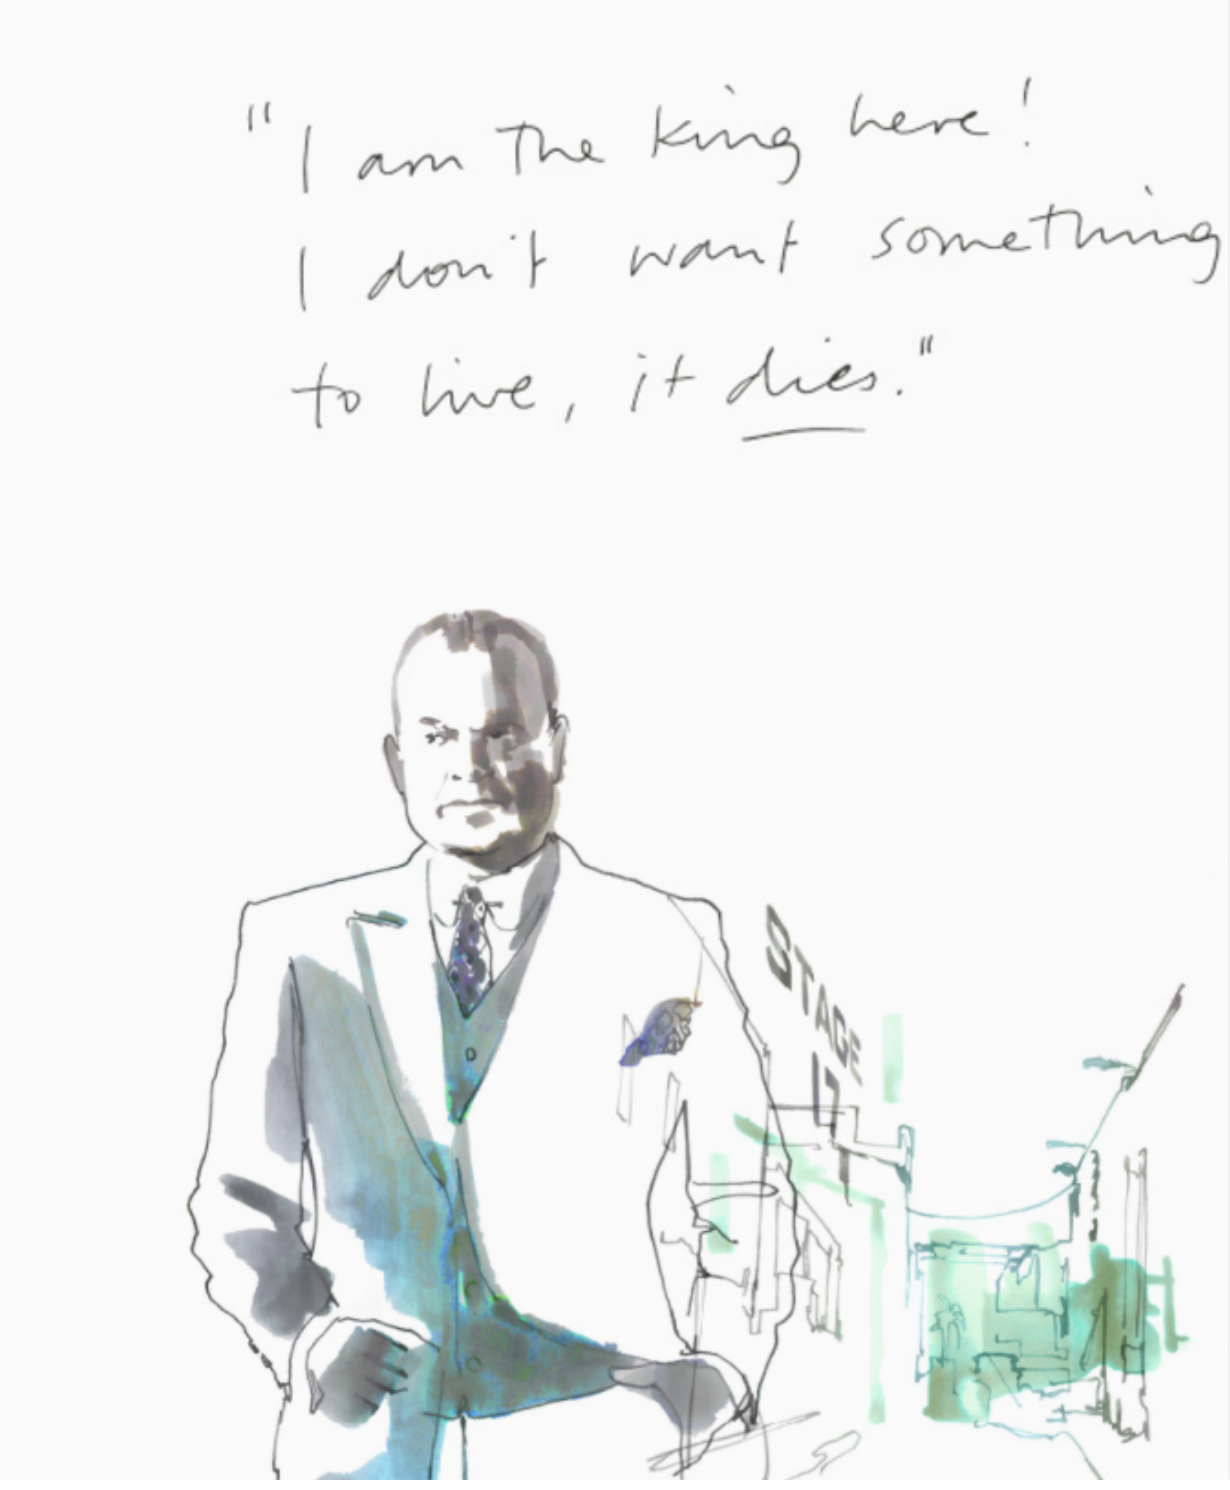 "I am The king here!
I don't want something
to live, it dies."
STAGE
17